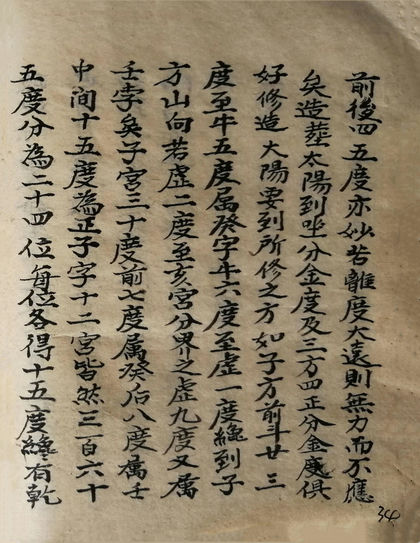 前後四五度亦妙若離度太遠則無力而不應
矣造塟太陽到坐分金度及三方四正分金度俱
好修造太陽要到所修之方如子方前斗廿三
度至牛五度属癸字牛六度至虚一度纔到子
方山向若虚二度至亥宮分界之虚九度又属
壬字矣子宮三十度前七度属癸后八度属壬
中間十五度為正子字十二宮皆然三百六十
五度分為二十四位每位各得十五度纔有乾
34